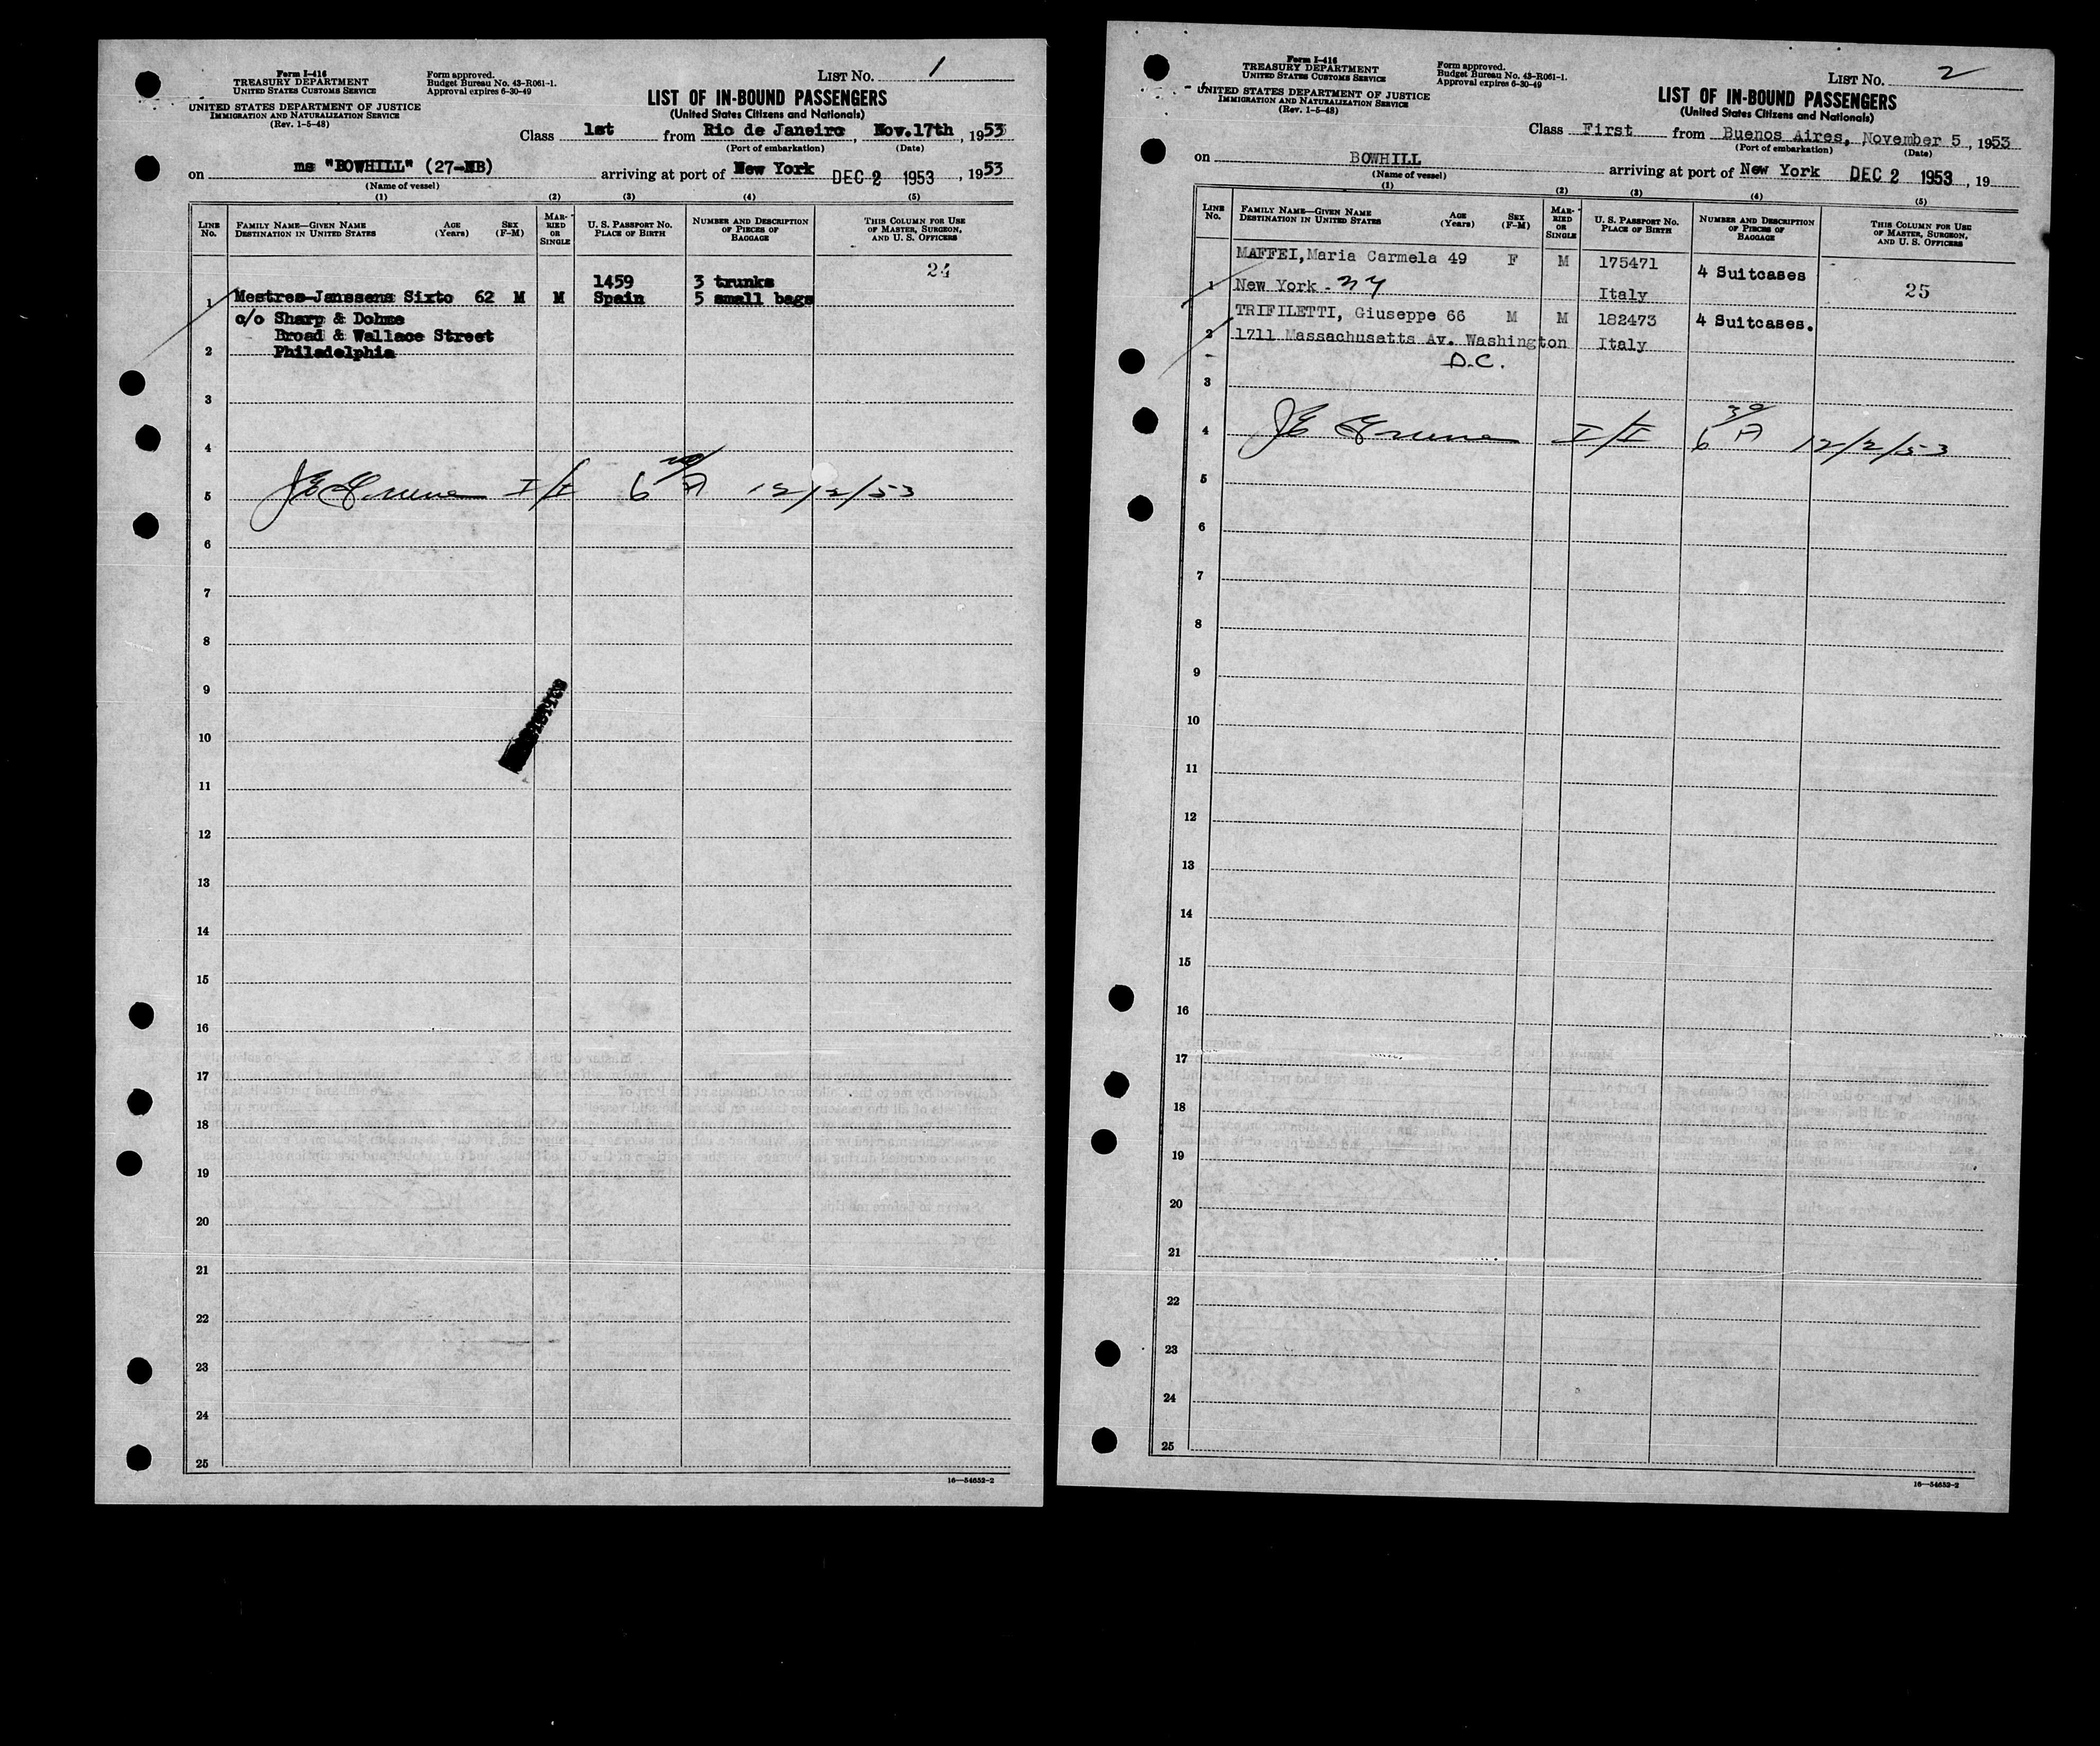 Form I-416
TREASURY DEPARTMENT
UNITED STATES CUSTOMS SERVICE
UNITED STATES DEPARTMENT OF JUSTICE
IMMIGRATION AND NATURALIZATION SERVICE
(Rev. 1-5-48)
Form approved.
Budget Bureau No. 43-R061-1.
Approval expires 6-30-49
LIST NO. 1
LIST OF IN-BOUND PASSENGERS
(United States Citizens and Nationals)
Class 1st from Rio de Janeiro, Nov.17th, 1953
(Port of embarkation) (Date)
on ms "BOWHILL" (27-NB) arriving at port of New York DEC 2 1953, 1953
(Name of vessel)
(1) (2) (3) (4) (5)
LINE No. FAMILY NAME—GIVEN NAME DESTINATION IN UNITED STATES AGE (Years) SEX (F-M) MARRIED OR SINGLE U. S. PASSPORT NO. PLACE OF BIRTH NUMBER AND DESCRIPTION OF PIECES OF BAGGAGE THIS COLUMN FOR USE OF MASTER, SURGEON, AND U. S. OFFICERS
24
1459 3 trunks
1 Mestres-Janssens Sixto 62 M M Spain 5 small bags
c/o Sharp & Dohme
Broad & Wallace Street
2 Philadelphia
3
4
5 I/I 6 A 12/2/53
6
7
8
9
10
11
12
13
14
15
16
17
18
19
20
21
22
23
24
25
16—54652-2
Form I-416
TREASURY DEPARTMENT
UNITED STATES CUSTOMS SERVICE
UNITED STATES DEPARTMENT OF JUSTICE
IMMIGRATION AND NATURALIZATION SERVICE
(Rev. 1-5-48)
Form approved.
Budget Bureau No. 43-R061-1.
Approval expires 6-30-49
LIST NO. 2
LIST OF IN-BOUND PASSENGERS
(United States Citizens and Nationals)
Class First from Buenos Aires, November 5, 1953
(Port of embarkation) (Date)
on BOWHILL arriving at port of New York DEC 2 1953, 19
(Name of vessel)
(1) (2) (3) (4) (5)
LINE No. FAMILY NAME—GIVEN NAME DESTINATION IN UNITED STATES AGE (Years) SEX (F-M) MARRIED OR SINGLE U. S. PASSPORT NO. PLACE OF BIRTH NUMBER AND DESCRIPTION OF PIECES OF BAGGAGE THIS COLUMN FOR USE OF MASTER, SURGEON, AND U. S. OFFICERS
MAFFEI, Maria Carmela 49 F M 175471 4 Suitcases
1 New York - NY Italy 25
TRIFILETTI, Giuseppe 66 M M 182473 4 Suitcases.
2 1711 Massachusetts Av. Washington Italy
D.C.
3
4 I/I 6 A 12/2/53
5
6
7
8
9
10
11
12
13
14
15
16
17
18
19
20
21
22
23
24
25
16—54652-2